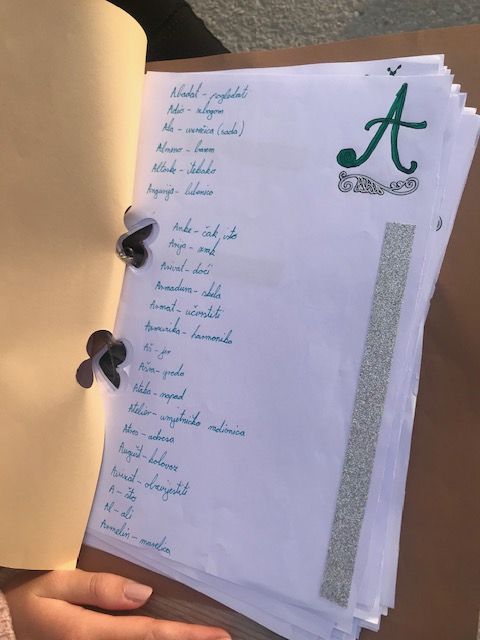 A
Abadat - pogledati
Adio - zbogom
Ala - uvenčica (sada)
Almeno - barem
Altroke - itekako
Angurija - lubenica
Anke - čak, isto
Arija - zrak
Arivat - doći
Armadura - skela
Armat - učvrstiti
Armunika - harmonika
Aš - jer
Ašva - greda
Atako - napad
Atelier - umjetničko radionica
Atres - adresa
August - kolovoz
Avizat - obavijestiti
A - što
Al - ali
Armelin - marelica